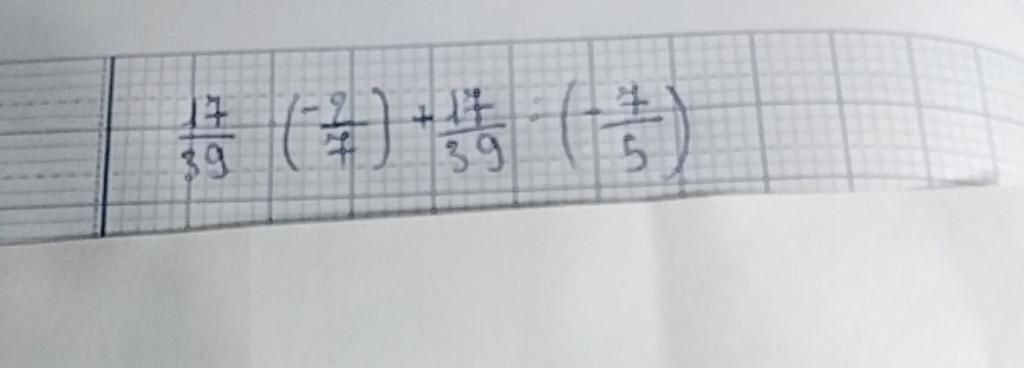 17/39 (-2/7) + 17/39 : (-7/5)